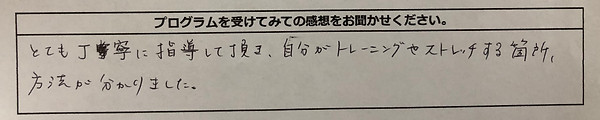 プログラムを受けてみての感想をお聞かせください。
とても丁寧に指導して頂き、自分がトレーニングやストレッチする箇所、
方法が分かりました。